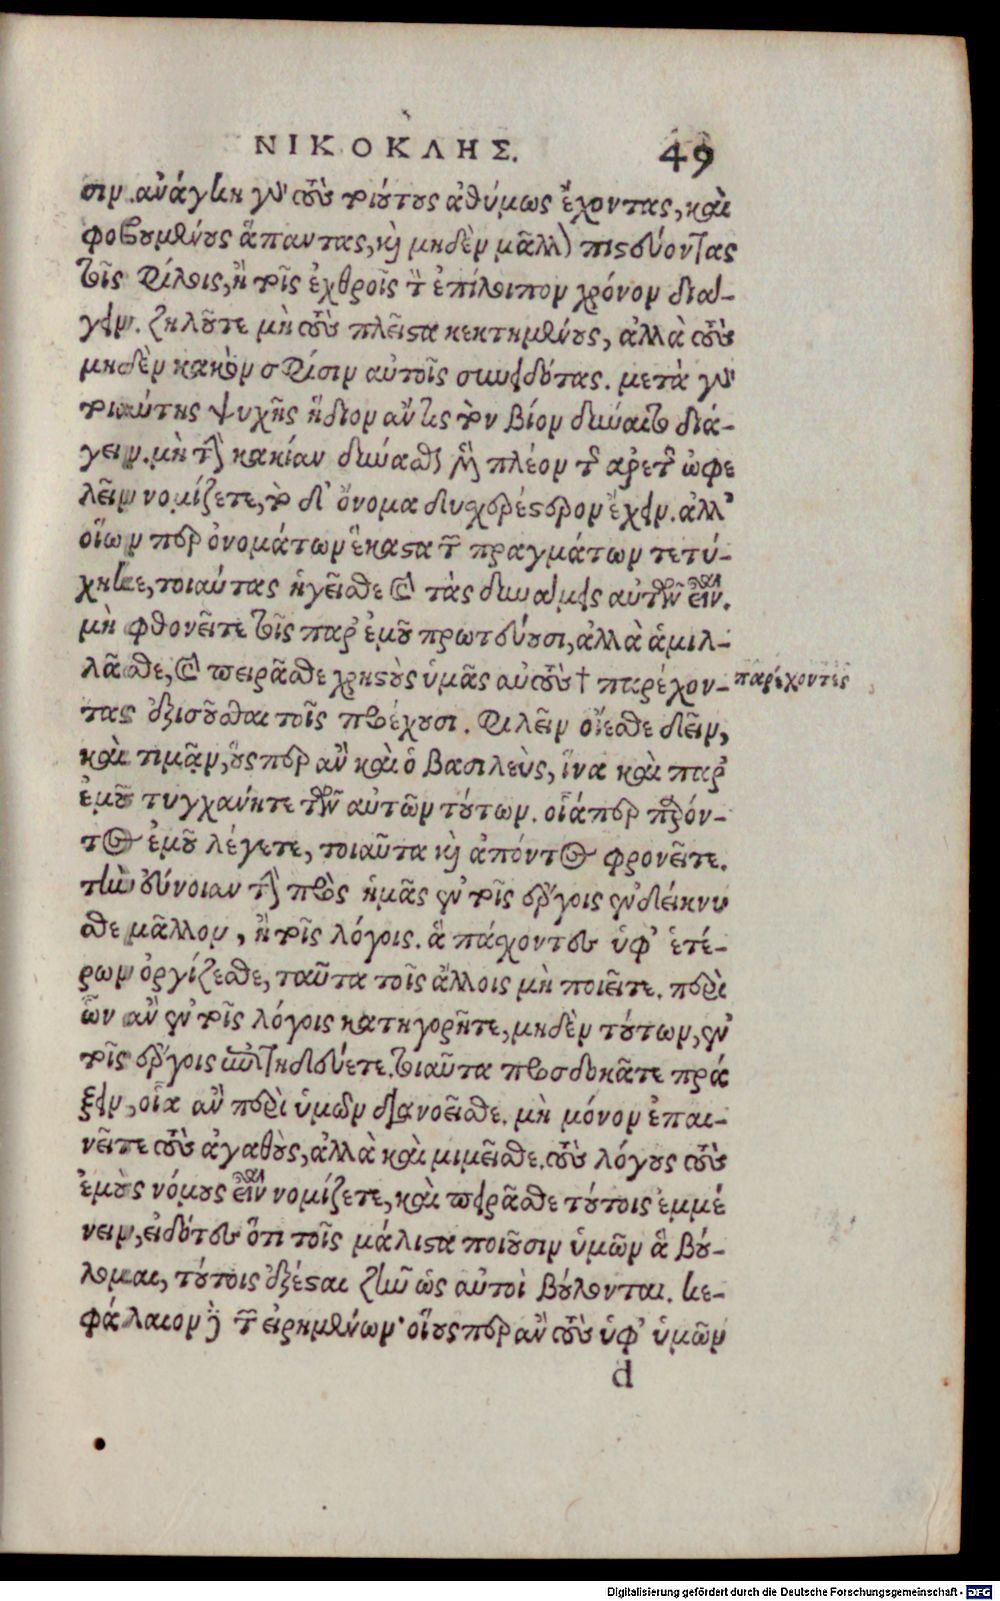 ΝΙΚΟΚΛΗΣ. 49
σιν. ἀνάγκη γὰρ τοὺς τοιούτους ἀθύμως ἔχοντας, καὶ
φοβουμένους ἅπαντας, καὶ μηδὲν μᾶλλον πιστεύοντας
τοῖς φίλοις, ἢ τοῖς ἐχθροῖς τὸν ἐπίλοιπον χρόνον διά-
γειν. ζηλοῦτε μὴ τοὺς πλεῖστα κεκτημένους, ἀλλὰ τοὺς
μηδὲν κακὸν σφίσιν αὐτοῖς συνειδότας. μετὰ γὰρ
τοιαύτης ψυχῆς ἥδιον ἄν τις τὸν βίον δύναιτο διά-
γειν. μὴ τὴν κακίαν δύνασθαι μὲν πλέον τῆς ἀρετῆς ὠφε
λεῖν νομίζετε, τὸ δ' ὄνομα δυσχερέστερον ἔχειν. ἀλλ'
οἵων περ ὀνομάτων ἕκαστα τῶν πραγμάτων τετύ-
χηκε, τοιαύτας ἡγεῖσθε καὶ τὰς δυνάμεις αὐτῶν εἶναι.
μὴ φθονεῖτε τοῖς παρ' ἐμοῦ πρωτεύουσι, ἀλλὰ ἁμιλ-
λᾶσθε, καὶ πειρᾶσθε χρηστοὺς ὑμᾶς αὐτοὺς † παρέχον- παρέχοντες
τας ἐξισοῦσθαι τοῖς προέχουσι. φιλεῖν οἴεσθε δεῖν,
καὶ τιμᾷν, οὕς περ ἂν καὶ ὁ βασιλεὺς, ἵνα καὶ παρ'
ἐμοῦ τυγχάνητε τῶν αὐτῶν τούτων. οἷάπερ παρόν-
τος ἐμοῦ λέγετε, τοιαῦτα καὶ ἀπόντος φρονεῖτε.
τὴν εὔνοιαν τὴν πρὸς ἡμᾶς ἐν τοῖς ἔργοις ἐνδείκνυ
σθε μᾶλλον, ἢ τοῖς λόγοις. ἃ πάσχοντες ὑφ' ἑτέ-
ρων ὀργίζεσθε, ταῦτα τοῖς ἄλλοις μὴ ποιεῖτε. περὶ
ὧν ἂν ἐν τοῖς λόγοις κατηγορῆτε, μηδὲν τούτων, ἐν
τοῖς ἔργοις ἐπιτηδεύετε. τοιαῦτα προσδοκᾶτε πρά
ξειν, οἷα ἂν περὶ ὑμῶν διανοεῖσθε. μὴ μόνον ἐπαι-
νεῖτε τοὺς ἀγαθοὺς, ἀλλὰ καὶ μιμεῖσθε. τοὺς λόγους τοὺς
ἐμοὺς νόμους εἶναι νομίζετε, καὶ πειρᾶσθε τούτοις ἐμμέ
νειν, εἰδότες ὅτι τοῖς μάλιστα ποιοῦσιν ὑμῶν ἃ βού-
λομαι, τούτοις ἐξέσται ζῆν ὡς αὐτοὶ βούλονται. κε-
φάλαιον δὲ τῶν εἰρημένων· οἵους περ ἂν τοὺς ὑφ' ὑμῶν
d
Digitalisierung gefördert durch die Deutsche Forschungsgemeinschaft - DFG